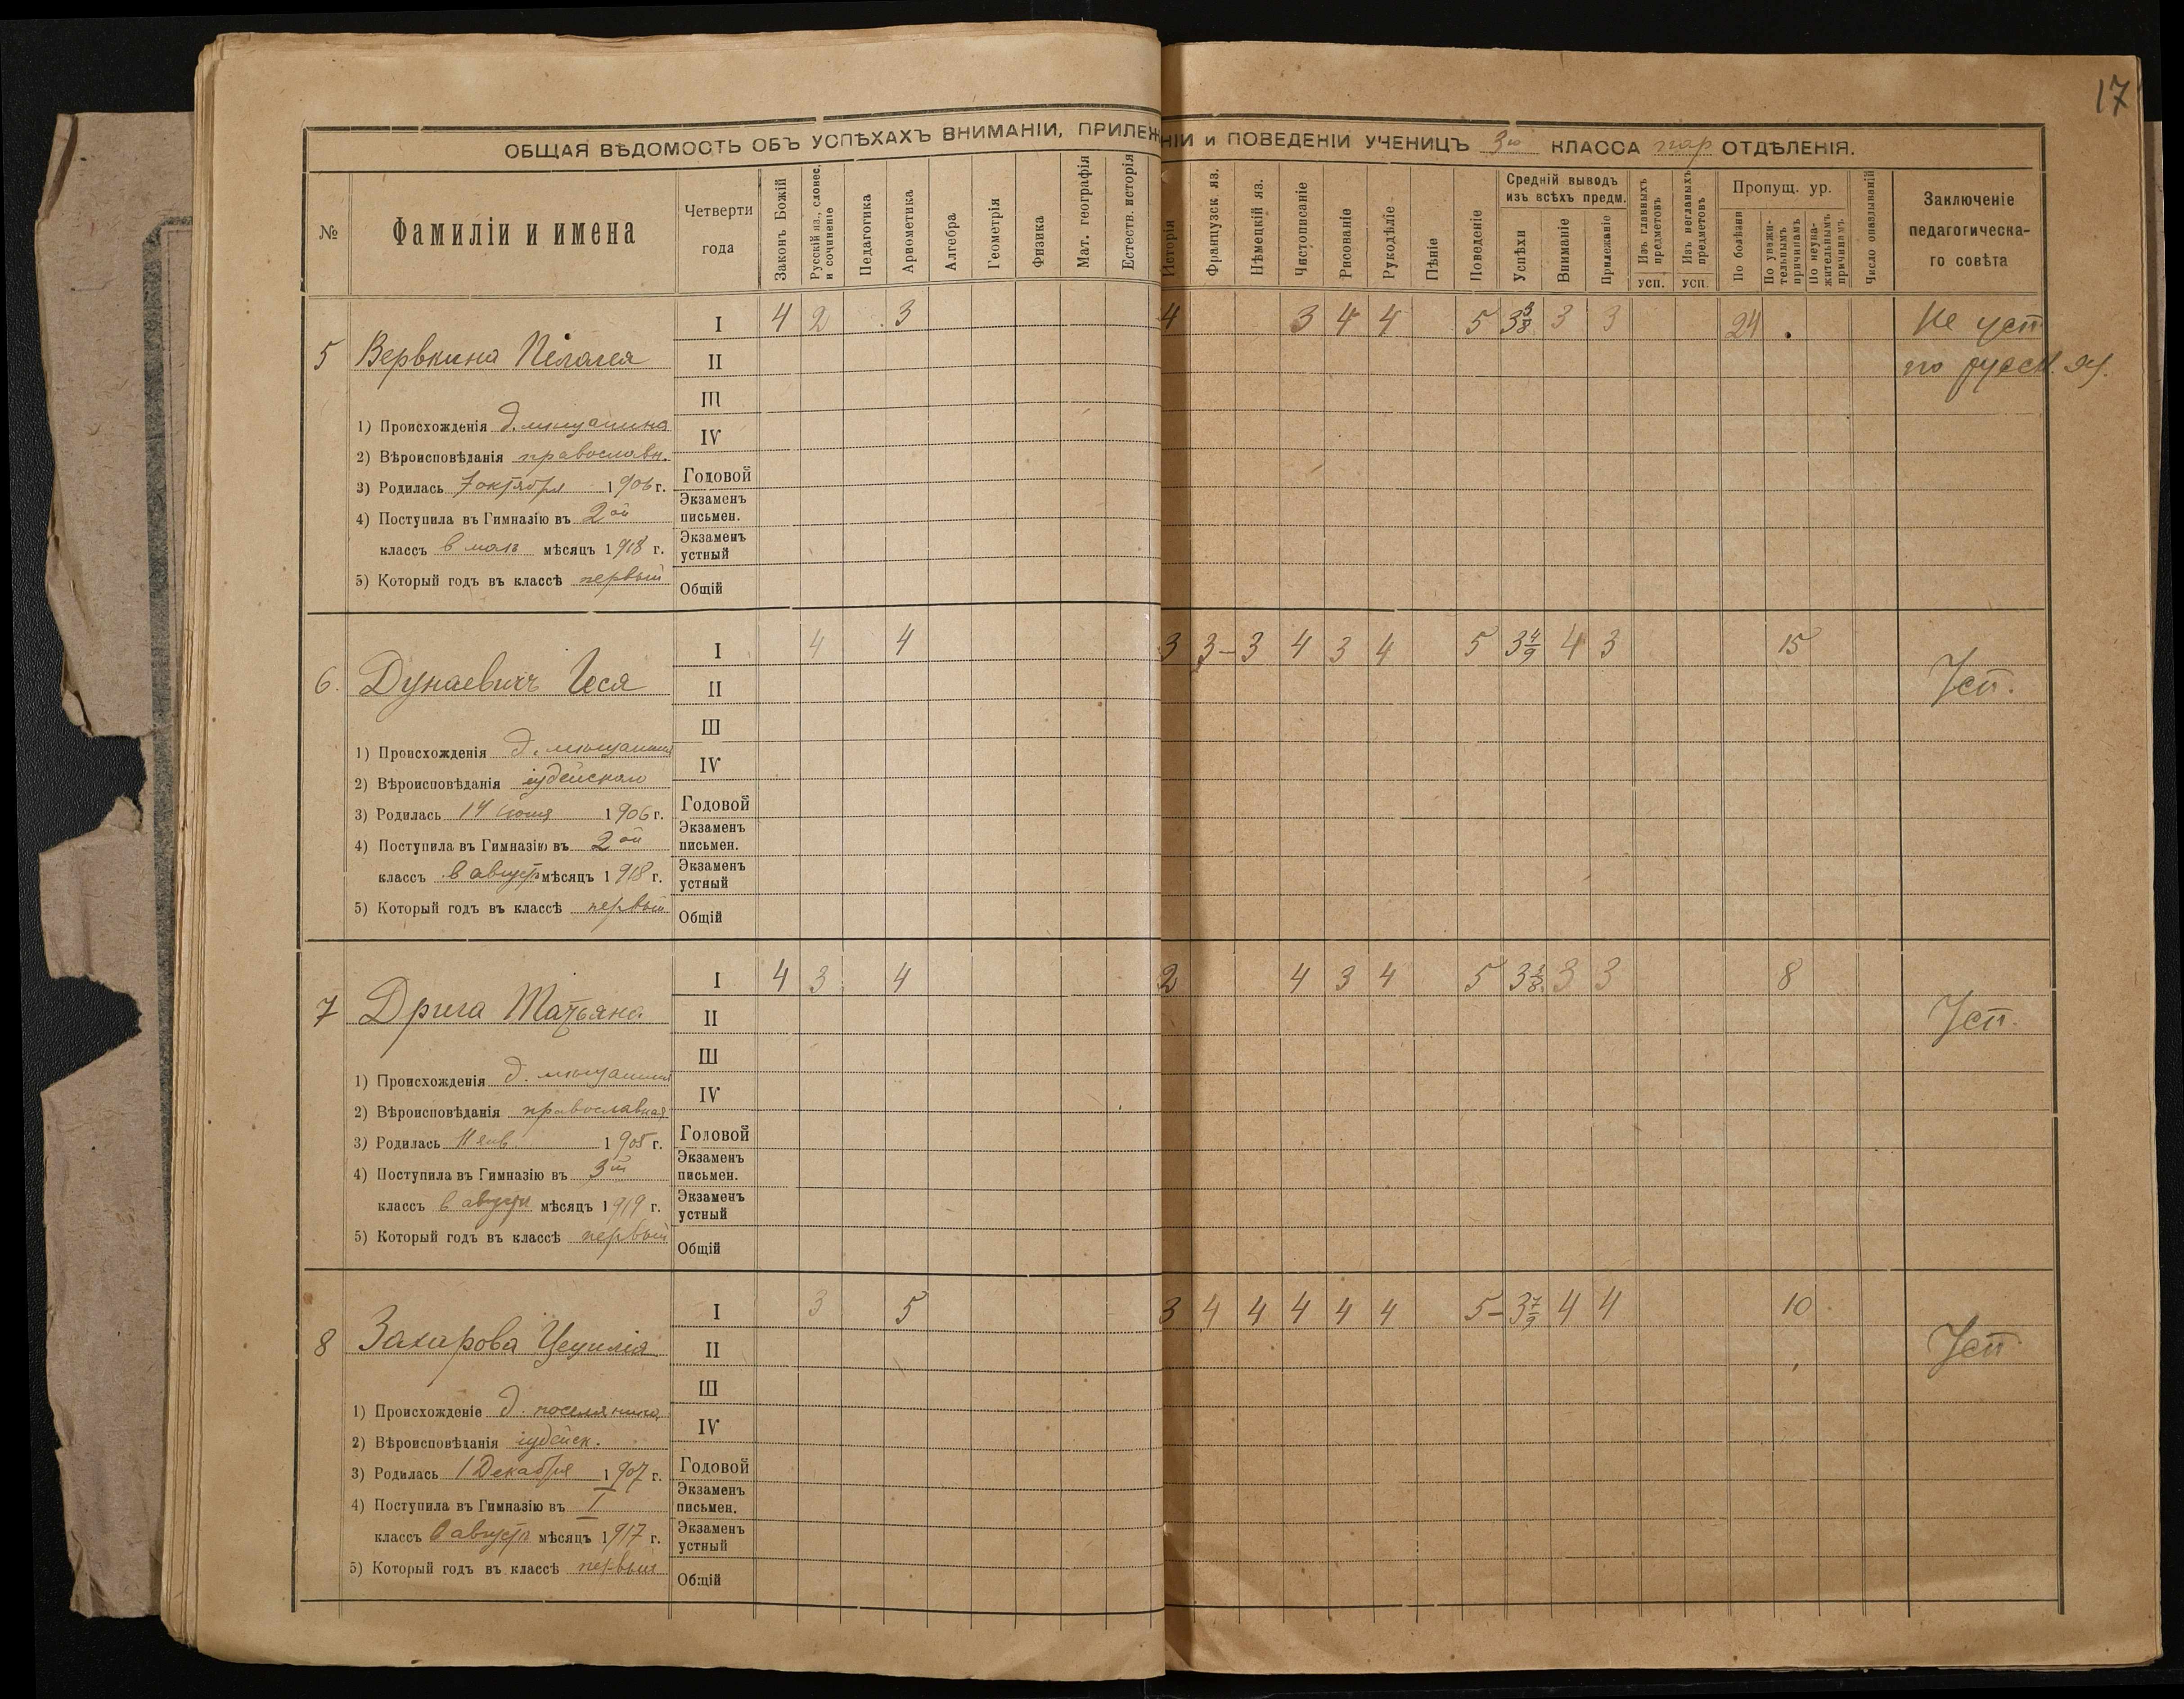 17
ОБЩАЯ ВѢДОМОСТЬ ОБЪ УСПѢХАХЪ ВНИМАНІИ, ПРИЛЕЖНІИ и ПОВЕДЕНІИ УЧЕНИЦЪ 3го КЛАССА пар ОТДѢЛЕНІЯ.
№ Фамиліи и имена Четверти года Законъ Божій Русскій яз., словес. и сочиненіе Педагогика Ариѳметика Алгебра Геометрія Физика Мат. географія Естеств. исторія Исторія Французск яз. Нѣмецкій яз. Чистописаніе Рисованіе Рукодѣліе Пѣніе Поведеніе Средній выводъ изъ всѣхъ предм. Успѣхи Вниманіе Прилежаніе Изъ главныхъ предметовъ усп. Изъ неглавныхъ предметовъ усп. Пропущ. ур. По болѣзни По уважительнымъ причинамъ По неуважительнымъ причинамъ Число опаздываній Заключеніе педагогическаго совѣта
I 4 2 3 4 3 4 4 5 3 3/8 3 3 24 Не усп
5 Вервкина Пелагея II по русск. яз.
III
1) Происхожденія д. мѣщанина
IV
2) Вѣроисповѣданія православн.
3) Родилась 7 октября 1906 г. Годовой
4) Поступила въ Гимназію въ 2ой Экзаменъ письмен.
классъ в маѣ мѣсяцъ 1918 г. Экзаменъ устный
5) Который годъ въ классѣ первый Общій
I 4 4 3 3- 3 4 3 4 5 3 4/9 4 3 15
6. Дунаевичъ Іеся II Усп.
III
1) Происхожденія д. мѣщанина
IV
2) Вѣроисповѣданія іудейскаго
3) Родилась 14 іюня 1906 г. Годовой
4) Поступила въ Гимназію въ 2ой Экзаменъ письмен.
классъ в августѣ мѣсяцъ 1918 г. Экзаменъ устный
5) Который годъ въ классѣ первый Общій
I 4 3 4 2 4 3 4 5 3 3 8
7 Дрига Татьяна II Усп.
III
1) Происхожденія д. мѣщанина
IV
2) Вѣроисповѣданія православная
3) Родилась 11 янв. 1905 г. Годовой
4) Поступила въ Гимназію въ 3й Экзаменъ письмен.
классъ в августѣ мѣсяцъ 1919 г. Экзаменъ устный
5) Который годъ въ классѣ первый Общій
I 3 5 3 4 4 4 4 4 5- 3 7/9 4 4 10
8 Захарова Цецилія II Усп
III
1) Происхожденіе д. поселянина
IV
2) Вѣроисповѣданія іудейск.
3) Родилась 1 Декабря 1907 г. Годовой
4) Поступила въ Гимназію въ I Экзаменъ письмен.
классъ в августѣ мѣсяцъ 1917 г. Экзаменъ устный
5) Который годъ въ классѣ первый Общій